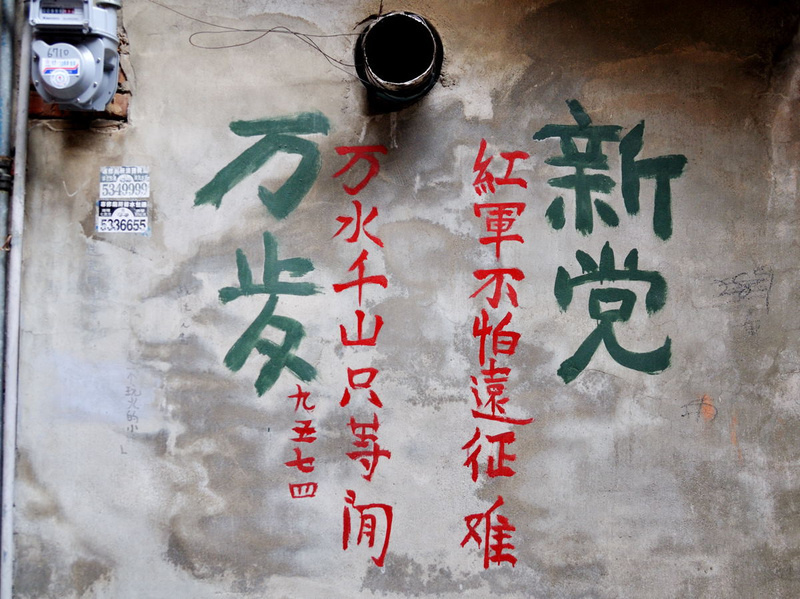 新党
紅軍不怕遠征难
万水千山只等閒
万岁
九五七四
6710
5349999
5336655